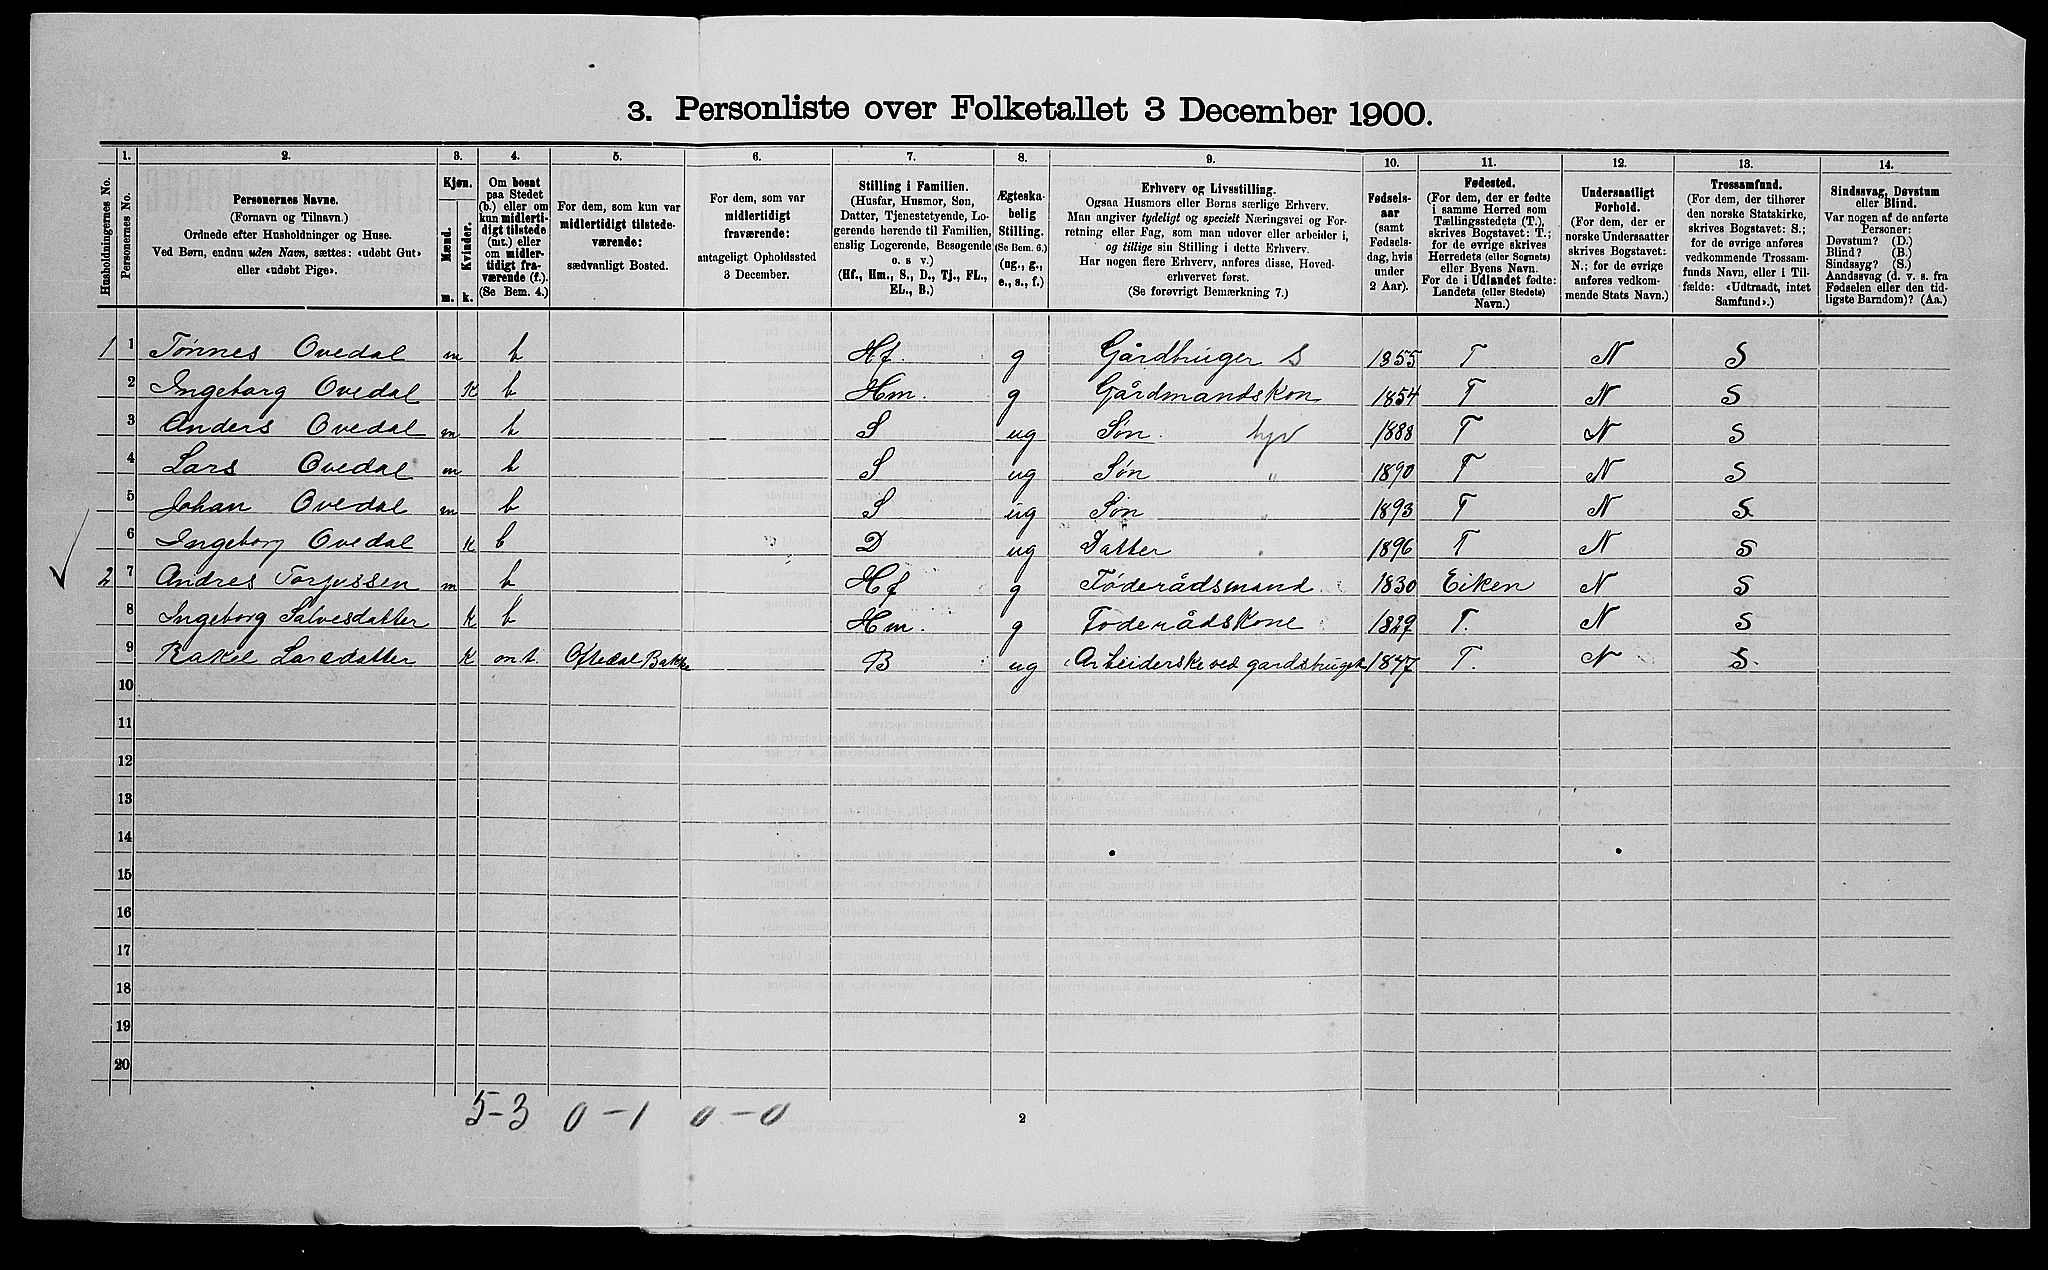 3. Personliste over Folketallet 3 December 1900.
1. 2. 3. 4. 5. 6. 7. 8. 9. 10. 11. 12. 13. 14.
Husholdningernes No.
Personernes No.
Personernes Navne.
(Fornavn og Tilnavn.)
Ordnede efter Husholdninger og Huse.
Ved Børn, endnu uden Navn, sættes: «udøbt Gut»
eller «udøbt Pige».
Kjøn.
Mænd.
Kvinder.
m. k.
Om bosat
paa Stedet
(b.) eller om
kun midlerti-
digt tilstede
(mt.) eller
om midler-
tidigt fra-
værende (f.)
(Se Bem. 4.)
For dem, som kun var
midlertidigt tilstede-
værende:
sædvanligt Bosted.
For dem, som var
midlertidigt
fraværende:
antageligt Opholdssted
3 December.
Stilling i Familien.
(Husfar, Husmor, Søn,
Datter, Tjenestetyende, Lo-
gerende hørende til Familien,
enslig Logerende, Besøgende
o. s v.)
(Hf., Hm., S., D., Tj., FL.,
EL., B.)
Ægteska-
belig
Stilling.
(Se Bem. 6.)
(ug., g.,
e., s., f.)
Erhverv og Livsstilling.
Ogsaa Husmors eller Børns særlige Erhverv.
Man angiver tydeligt og specielt Næringsvei og For-
retning eller Fag, som man udover eller arbeider i,
og tillige sin Stilling i dette Erhverv.
Har nogen flere Erhverv, anføres disse, Hoved-
erhvervet først.
(Se forøvrigt Bemærkning 7.)
Fødsels-
aar
(samt
Fødsels-
dag, hvis
under
2 Aar).
Fødested.
(For dem, der er fødte
i samme Herred som
Tællingsstedets (T.),
skrives Bogstavet: T.;
for de øvrige skrives
Herredets (eller Sognets)
eller Byens Navn.
For de i Udlandet fødte:
Landets (eller Stedets)
Navn.)
Undersaatligt
Forhold.
(For dem, der er
norske Undersaatter
skrives Bogstavet:
N.; for de øvrige
anføres vedkom-
mende Stats Navn.)
Trossamfund.
(For dem, der tilhører
den norske Statskirke,
skrives Bogstavet: S.;
for de øvrige anføres
vedkommende Trossam-
funds Navn, eller i Til-
fælde: «Udtraadt, intet
Samfund».)
Sindssvag, Døvstum
eller Blind.
Var nogen af de anførte
Personer:
Døvstum? (D.)
Blind? (B.)
Sindssyg? (S.)
Aandssvag (d. v. s. fra
Fødselen eller den tid-
ligste Barndom)? (Aa.)
1 1 Tønnes Ovedal m b Hf. g Gårdbruger S 1855 T N S
2 Ingeborg Ovedal k b Hm. g Gårdmandskon 1854 T N S
3 Anders Ovedal m b S ug Søn. 1888 T N S
4 Lars Ovedal m b S ug Søn " 1890 T N S
5 Johan Ovedal m b S ug Søn " 1893 T N S
6 Ingeborg Ovedal k b D ug Datter " 1896 T N S
2 7 Andres Torjussen m b Hf g Føderådsmand 1830 Eiken N S
8 Ingeborg Salvesdatter k b Hm. g Foderådskone 1829 T. N S
9 Rakel Larsdatter k mt. Oftedal Bakke B ug Arbeiderske ved gardsbruget 1847 T. N S.
10
11
12
13
14
15
16
17
18
19
20
5-3 0-1 0-0
2